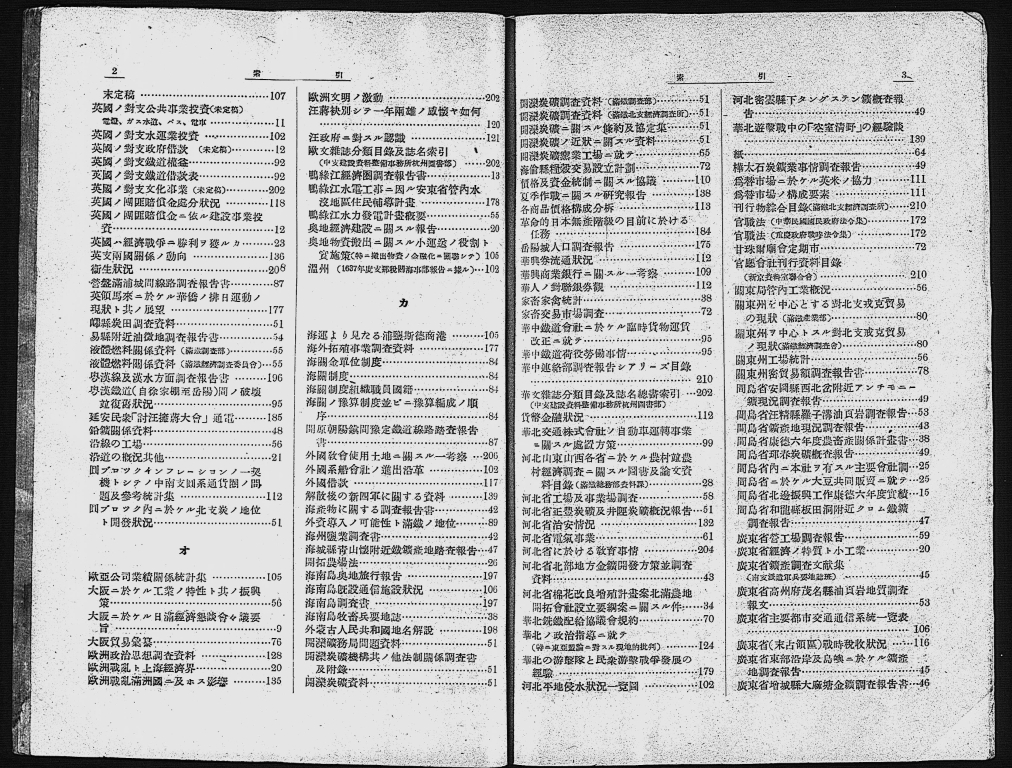 2
索 引
末定稿 107
英國ノ對支公共事業投資(未定稿)
電燈、ガス水道、バス、電車 11
英國ノ對支水運業投資 102
英國ノ對支政府借款 (未定稿) 12
英國ノ對支鐵道權益 92
英國ノ對支鐵道借款表 92
英國ノ對支文化事業(未定稿) 202
英國ノ團匪賠償金處分狀況 118
英國ノ團匪賠償金ニ依ル建設事業投
資 12
英國ハ經濟戰爭ニ勝利ヲ獲ルカ 23
英支兩國關係ノ動向 136
衞生狀況 208
營盤滿浦城間線路調査報告書 87
英領馬來ニ於ケル華僑ノ排日運動ノ
現狀ト其ノ展望 177
縣炭田調査資料 51
易縣附近油徴地調査報告書 54
液體燃料關係資料(滿鐵調査部) 55
液體燃料關係資料(滿鐵經濟調査委員會) 55
粤漢線及漢水方面調査報告書 196
粤漢鐵道(自徐家棚至岳陽)間ノ破壞
竝復舊狀況 95
延安民衆「討汪擁蔣大會」通電 185
鉛鑛關係資料 48
沿線の工場 56
沿道の概況其他 21
圓ブロックインフレーションノ一契
機トシテノ中南支圓系通貨圏ノ問
題及參考統計集 112
圓ブロック內ニ於ケル北支炭ノ地位
ト開發狀況 51
オ
歐亞公司業績關係統計集 105
大阪ニ於ケル工業ノ特性ト其ノ振興
策 56
大阪ニ於ケル日滿經濟懇談會々議要
旨 9
大阪貿易彙纂 76
歐洲政治思想調査資料 128
歐洲戰亂ト上海經濟界 20
歐洲戰亂滿洲國ニ及ホス影響 135
歐洲文明ノ激動 202
汪蔣袂別シテ一年兩雄ノ感懷ヤ如何
120
汪政府ニ對スル認識 121
歐文雜誌分類目錄及誌名索引
(中支建設資料整備事務所杭州圖書部) 202
鴨綠江經濟圏調査報告書 13
鴨綠江水電工事ニ因ル安東省管內水
沒地區住民輔導計畫 178
鴨綠江水力發電計畫概要 55
奧地經濟建設ニ關スル報告 20
奧地物資搬出ニ關スル小運送ノ役割ト
實施策(特ニ搬出物資ノ合理化ニ關聯シテ) 105
溫州 (1637年度支那稅關海事部報告ニ據ル) 102
カ
海運より見たる浦鹽斯德商港 105
海外拓殖事業調査資料 177
海關金單位制度 84
海關制度 84
海關制度組織職員國籍 84
海關ノ豫算制度並ビニ豫算編成ノ順
序 84
開原朝陽鎭間豫定鐵道線路踏査報告
書 87
外國敎會使用土地ニ關スル一考察 206
外國系船會社ノ進出沿革 102
外國借款 117
解散後の新四軍に關する資料 139
海產物に關する調査報告書 42
外資導入ノ可能性ト滿鐵ノ地位 89
海州鹽業調査書 42
海城縣靑山懷附近鐵鑛產地踏査報告 47
開拓農場法 26
海南島奧地旅行報告 197
海南島旣設通信施設狀況 106
海南島調査書 197
海南島牧畜兵要地誌 38
外蒙古人民共和國地名解說 198
開灤鑛務局問題資料 51
開灤炭鑛機構共ノ他法制關係調査書
及附錄 51
開灤炭鑛資料 51
索 引
3
開灤炭礦調査資料 (滿鐵調査部) 51
開灤炭礦調査資料 (滿鐵北支經濟調査所) 51
開灤炭礦ニ關スル條約及協定集 51
開灤炭礦ノ近狀ニ關スル資料 51
開灤炭礦窯業工場ニ就テ 65
海倫縣糧穀交易設立計劃 72
價格及資金統制ニ關スル協議 110
夏季作戰ニ關スル硏究報告 138
各商品價格構成分拆 113
革命的日本無產階級の目前に於ける
任務 184
岳陽城人口調査報告 175
華興券流通狀況 112
華興商業銀行ニ關スル一考察 109
華人ノ對聯銀券觀 112
家畜家禽統計 38
家畜交易市場調査 72
華中鐵道會社ニ於ケル臨時貨物運賃
改正ニ就テ 95
華中鐵道荷役勞働事情 95
華中連絡部調査報告シアリーズ目錄
210
華文雜誌分類目錄及誌名總書索引 202
(中支建設資料整備事務所杭州圖書部)
貨幣金融狀況 112
華北交通株式會社ノ自動車運轉事業
ニ關スル處置方策 99
河北山東山西各省ニ於ケル農村竝農
村經濟調査ニ關スル圖書及論文資
料目錄(滿鐵總務部資料課) 28
河北省工場及事業場調査 58
河北省正豐炭礦及井陘炭礦概況報告 51
河北省治安情況 132
河北省電氣事業 61
河北省に於ける敎育事情 204
河北省北部地方金鑛開發方策並調査
資料 43
河北省棉花改良增殖計畫案北滿農地
開拓會社設立要綱案ニ關スル件 34
華北銑鐵配給協議會規約 70
華北ノ政治指導ニ就テ
(特ニ東亞聯盟論ニ對スル現地的批判) 124
華北の游擊隊と民衆游擊戰爭發展の
經驗 179
河北平地侵水狀況一覽圖 102
河北密雲縣下タングステン鑛概査報
告 49
華北遊擊戰中の「空室淸野」の經驗談
139
紙 64
樺太石炭鑛業事情調査報告 49
爲替市場ニ於ケル英米ノ協力 111
爲替市場ノ構成要素 111
刊行物綜合目錄(滿鐵北支經濟調査所) 210
官職法 (中華民國國民政府法令集) 172
官職法 (重慶政府戰時法令集) 172
甘珠爾廟會定期市 72
官廳會社刊行資料目錄
(新京資料室聯合會) 210
關東局管內工業概況 56
關東州を中心とする對北支戎克貿易
の現狀(滿鐵產業部) 80
關東州ヲ中心トスル對北支戎克貿易
ノ現狀(滿鐵經濟調査會) 80
關東州工場統計 56
關東州密貿易額調査報告書 78
間島省安圖縣西北岔附近アンチモニー
鑛現況調査報告 49
間島省汪精縣羅子溝油頁岩調査報告 53
間島省鑛產地現況調査 43
間島省康德六年度農畜產關係計畫書 38
間島省琿春炭礦概査報告 49
間島省內ニ本社ヲ有スル主要會社調 25
間島省ニ於ケル大豆共同販賣ニ就テ 25
間島省北邊振興工作康德六年度實績 15
間島省和龍縣板田洞附近クロム鐵鑛
調査報告 47
廣東省營工場調査報告 59
廣東省經濟ノ特質ト小工業 20
廣東省鑛產調査文獻集
(南支鐵道軍兵要地誌班) 45
廣東省高州府茂名縣油頁岩地質調査
報文 53
廣東省主要都市交通通信系統一覽表
106
廣東省(未占領區)戰時稅收狀況 116
廣東省東部沿岸及島嶼ニ於ケル鑛產
地調査報告 45
廣東省增城縣大麻塘金鑛調査報告書 46